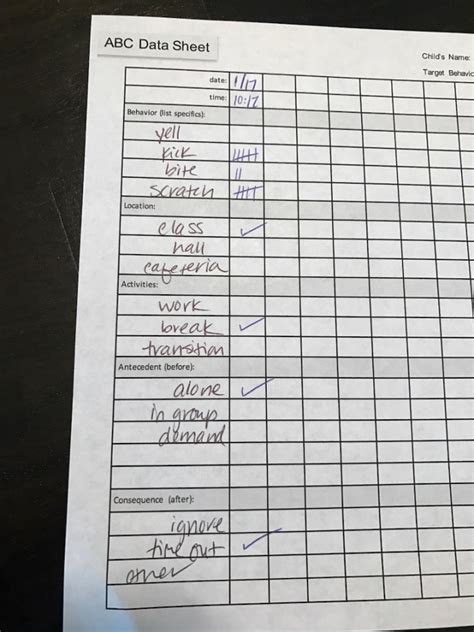 ABC Data Sheet
Child's Name:
Target Behavio
date: 1/17
time: 10:17
Behavior (list specifics):
yell
kick
bite
scratch
Location:
class ✓
hall
cafeteria
Activities:
work
break ✓
transition
Antecedent (before):
alone ✓
in group
demand
Consequence (after):
ignore
time out ✓
other